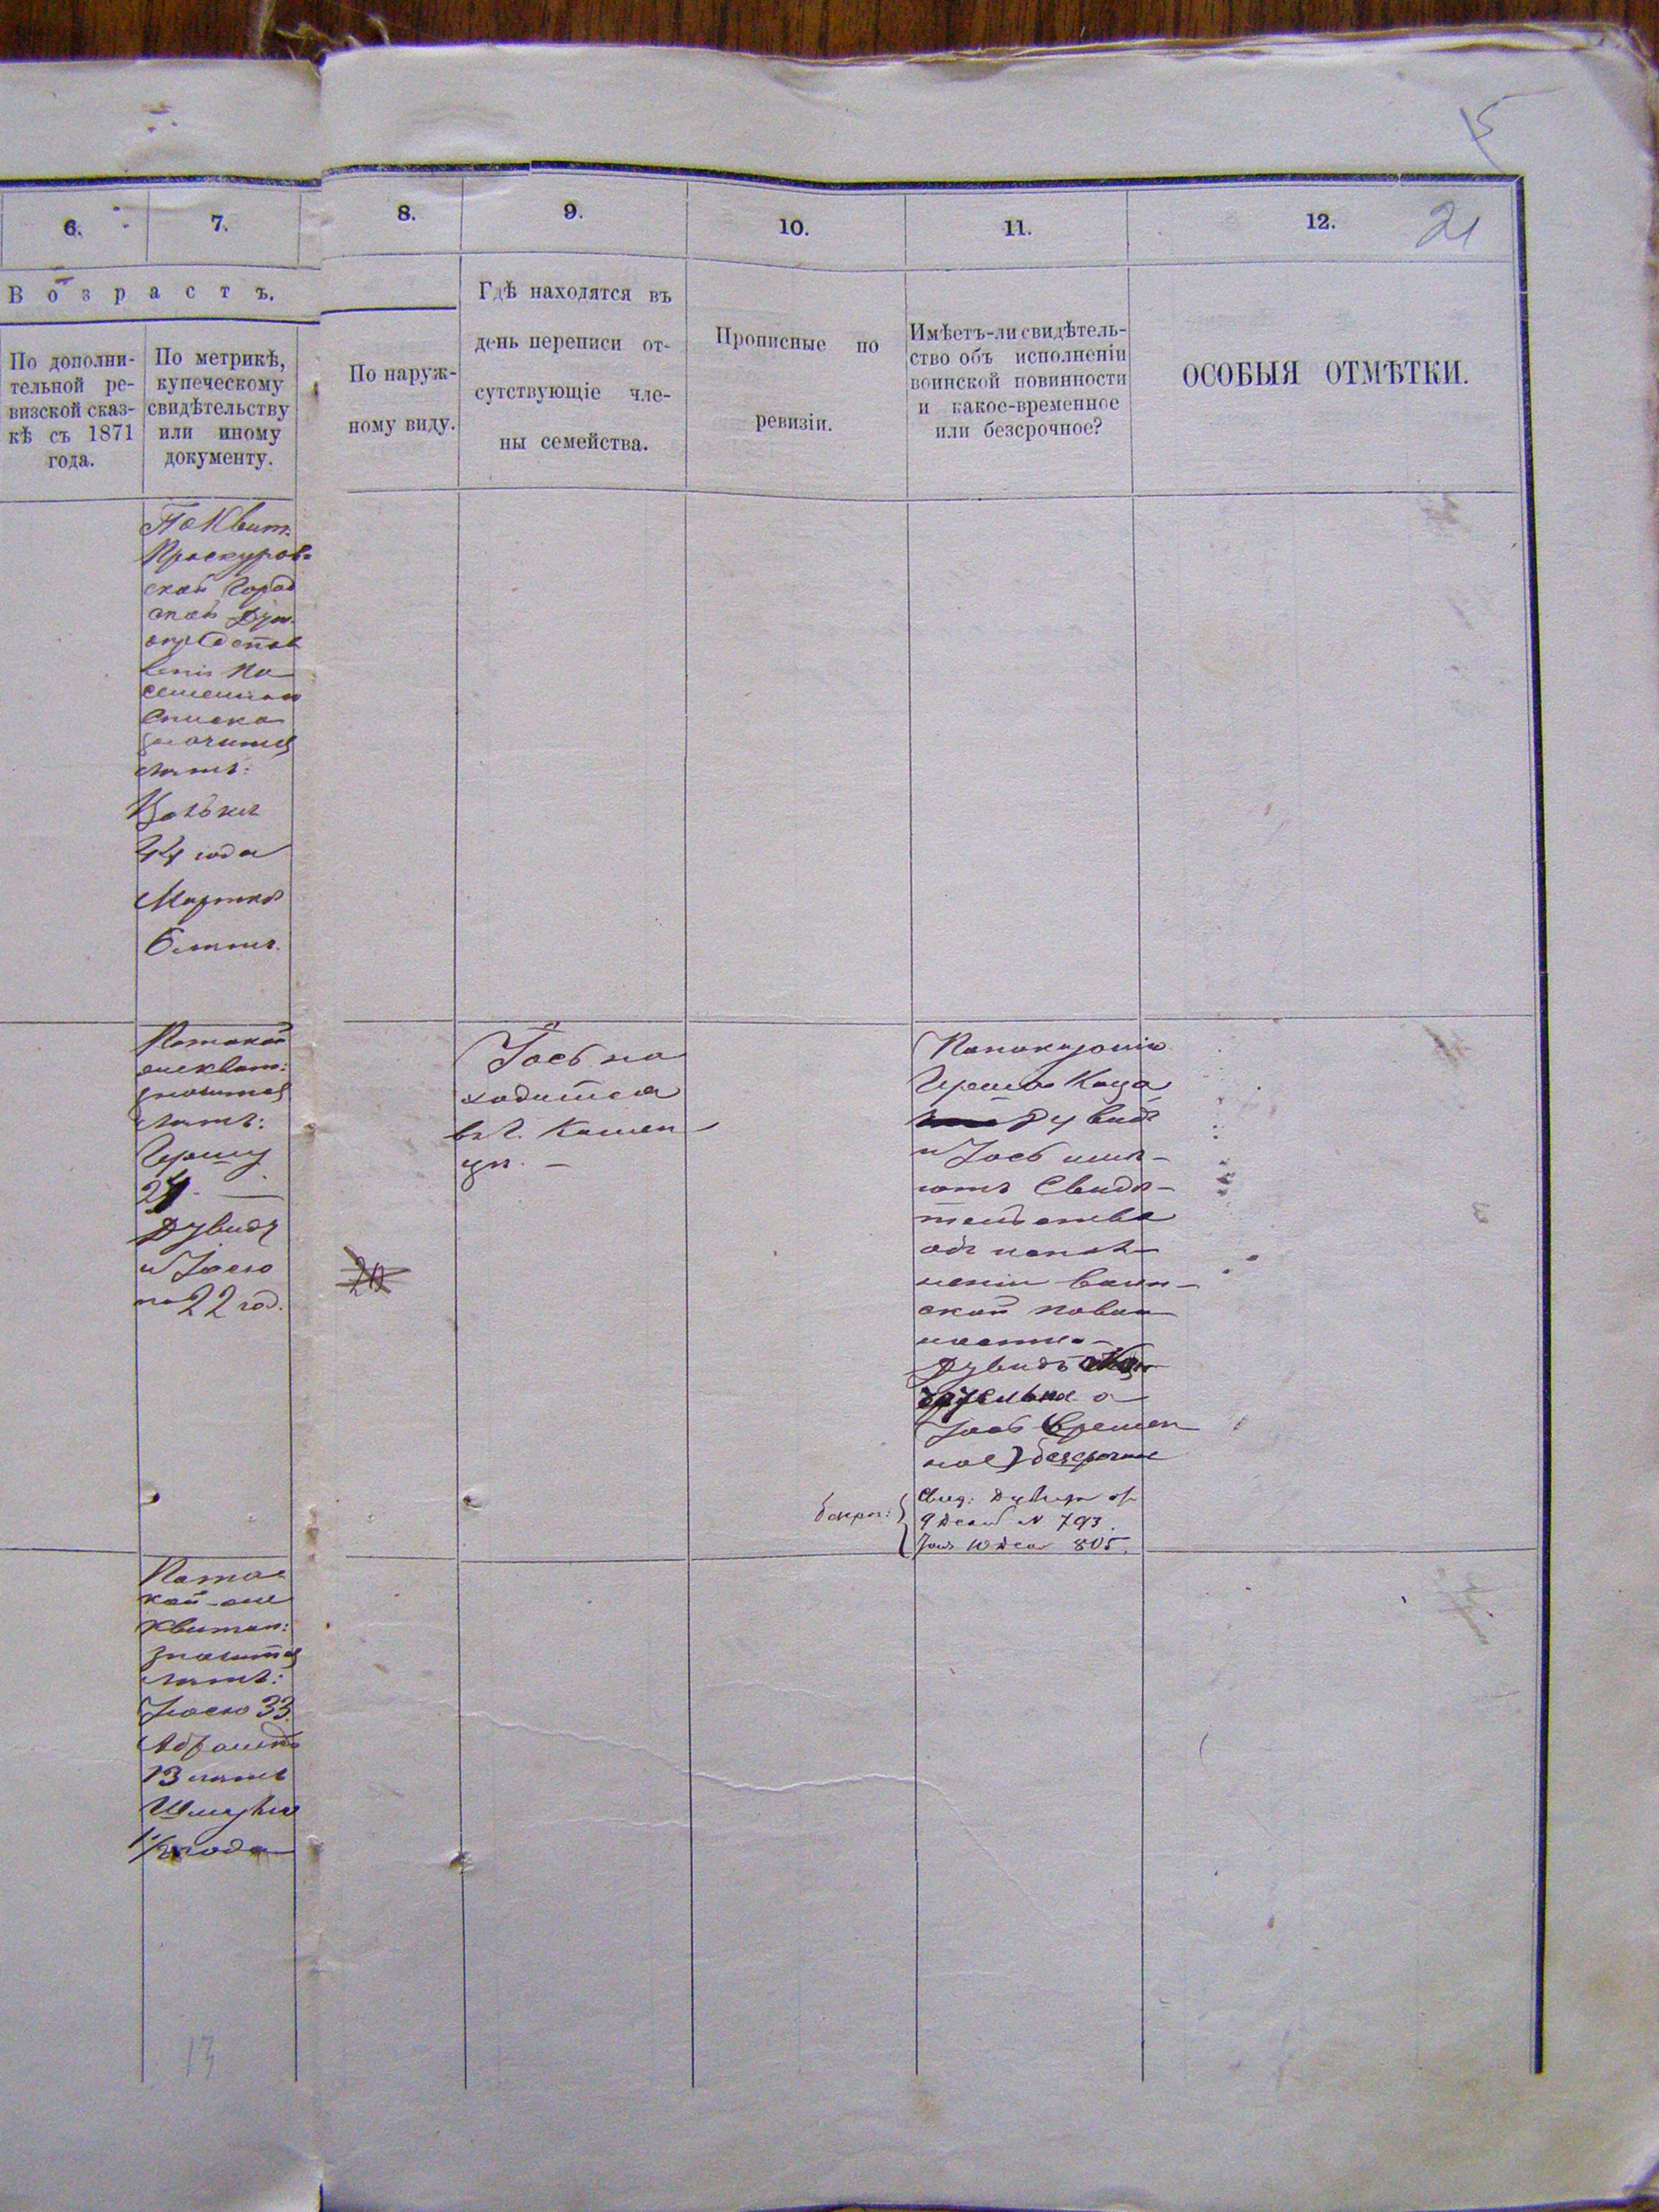 15
6.
7.
8.
9.
10.
11.
12.
21
Возрастъ.
По дополни-
тельной ре-
визской сказ-
кѣ съ 1871
года.
По метрикѣ,
купеческому
свидѣтельству
или иному
документу.
По наруж-
ному виду.
Гдѣ находятся въ
день переписи от-
сутствующіе чле-
ны семейства.
Прописные по
ревизіи.
Имѣетъ-ли свидѣтель-
ство объ исполненіи
воинской повинности
и какое-временное
или безсрочное?
ОСОБЫЯ ОТМѢТКИ.
По Квит.
Проскуров-
ской Город
ской Дум.
значится
лѣтъ:
44 года
6 лѣтъ.
По такой
же квит:
значится
лѣтъ:
Гершу
Дувидъ
и Іосю
по 22 год.
20
Іось на
ходится
въ г. Камен
цѣ. —
По показанію
Герша Каца
Дувидъ
и Іось имѣ-
ютъ Свидѣ-
тельства
объ испол-
неніи воин-
ской повин
ности
Дувидъ
а
Іось Времен
ное) безсрочное
Свид: Дувида от
9 Декаб N 793.
Іося 10 Дека 805.
По та
кой-же
квитан:
значится
лѣтъ:
Іосю 33.
13 лѣтъ
1½ года
13